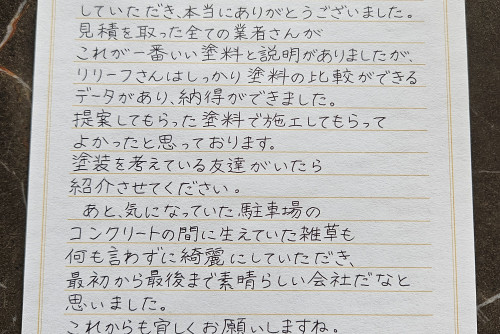 していただき、本当にありがとうございました。
見積を取った全ての業者さんが
これが一番いい塗料と説明がありましたが、
リリーフさんはしっかり塗料の比較ができる
データがあり、納得ができました。
提案してもらった塗料で施工してもらって
よかったと思っております。
塗装を考えている友達がいたら
紹介させてください。
あと、気になっていた駐車場の
コンクリートの間に生えていた雑草も
何も言わずに綺麗にしていただき、
最初から最後まで素晴らしい会社だなと
思いました。
これからも宜しくお願いしますね。